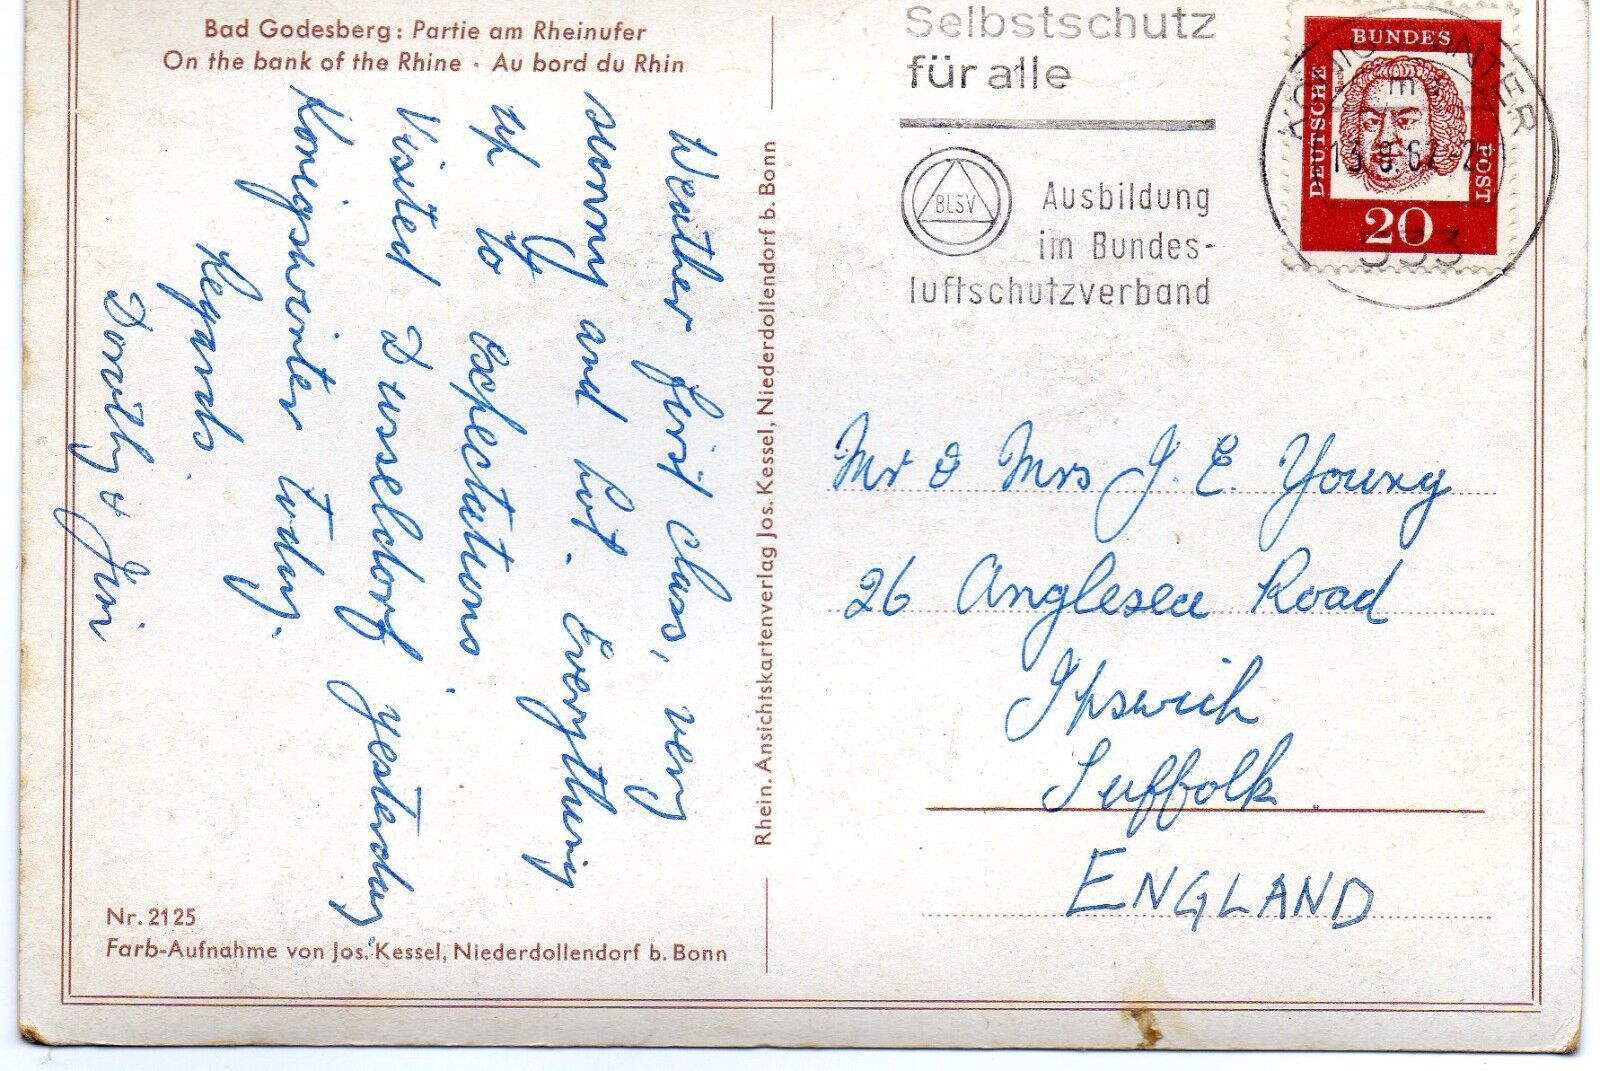 Bad Godesberg: Partie am Rheinufer
On the bank of the Rhine · Au bord du Rhin
Weather first class, very
sunny and hot. Everything
up to expectations.
Visited Dusseldorf yesterday,
Konigswinter today.
Regards
Dorothy & Jim
Nr. 2125
Farb-Aufnahme von Jos. Kessel, Niederdollendorf b. Bonn
Rhein. Ansichtskartenverlag Jos. Kessel, Niederdollendorf b. Bonn
Selbstschutz
für alle
BLSV
Ausbildung
im Bundes-
luftschutzverband
DEUTSCHE
BUNDES
POST
20
13.8.62
533
Mr & Mrs J. E. Young
26 Anglesea Road
Ipswich
Suffolk.
ENGLAND